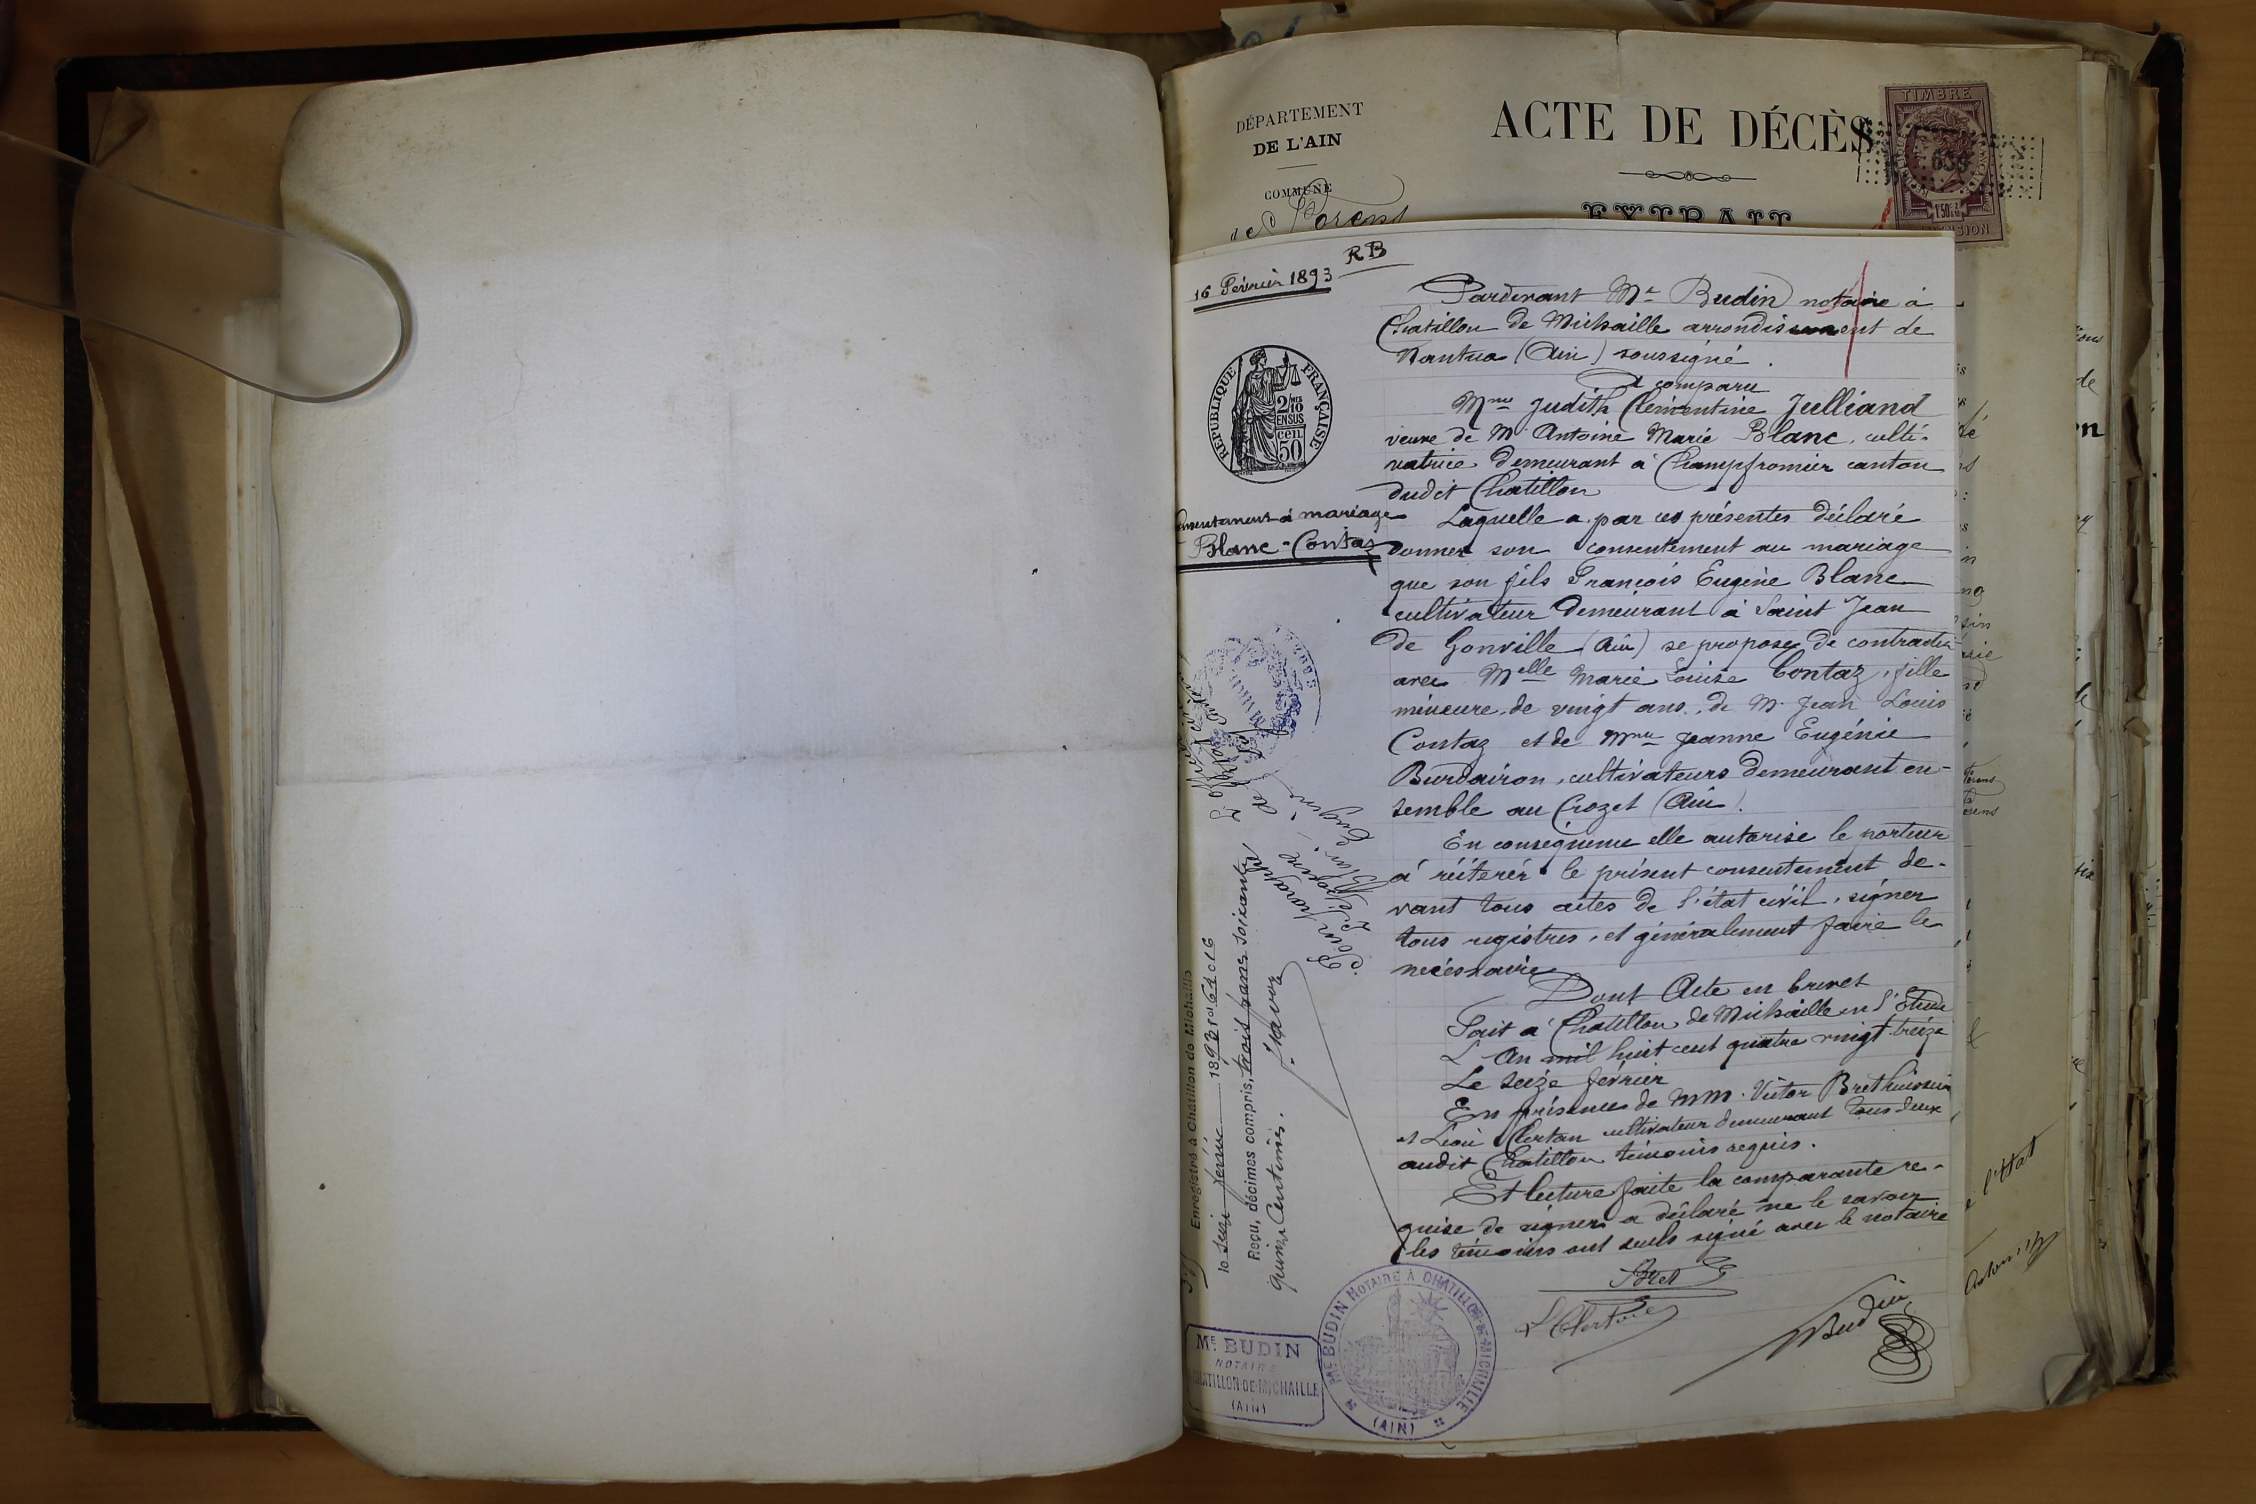 DÉPARTEMENT
DE L'AIN
COMMUNE
de Vorens
ACTE DE DÉCÈS
EXTRAIT
TIMBRE
638
1f50c
RB
16 Février 1893
RÉPUBLIQUE FRANÇAISE
2/10 MES
EN SUS
50 cen
Blanc - Contaz
Pardevant Me Budin notaire à
Chatillon de Michaille arrondissement de
Nantua (Ain) soussigné.
A comparu
Mme Judith Clémentine Julliand
veuve de M. Antoine Marie Blanc, culti-
vatrice demeurant à Champfromier canton
dudit Chatillon
Laquelle a par ces présentes déclaré
donner son consentement au mariage
que son fils François Eugène Blanc
cultivateur demeurant à Saint Jean
de Gonville (Ain) se propose de contracter
avec Melle Marie Louise Contaz, fille
mineure, de vingt ans, de M. Jean Louis
Contaz et de Mme Jeanne Eugénie
Burdairon, cultivateurs demeurant en-
semble au Crozet (Ain).
En conséquence elle autorise le porteur
à réitérér le présent consentement de-
vant tous actes de l'état civil, signer
tous registres, et généralement faire le
nécéssaire
Dont Acte en brevet
Fait à Chatillon de Michaille en l'Etude
L'An mil huit cent quatre vingt treize
Le seize février
En présence de MM. Victor
et Léon Clertan cultivateur demeurant tous deux
audit Chatillon témoins requis.
Et lecture faite la comparante re-
quise de signer a déclaré ne le savoir
les témoins ont seuls signé avec le notaire
Bret
Budin
Enregistré à Chatillon de Michaille
le seize février 1893 fo 61 c 16
Reçu, décimes compris, trois francs soixante
quinze centimes.
Pour paraphe
L'Epoux
Blanc Eugène
Me BUDIN
NOTAIRE
CHATILLON-DE-MICHAILLE
(AIN)
Me BUDIN NOTAIRE À CHATILLON-DE-MICHAILLE
(AIN)